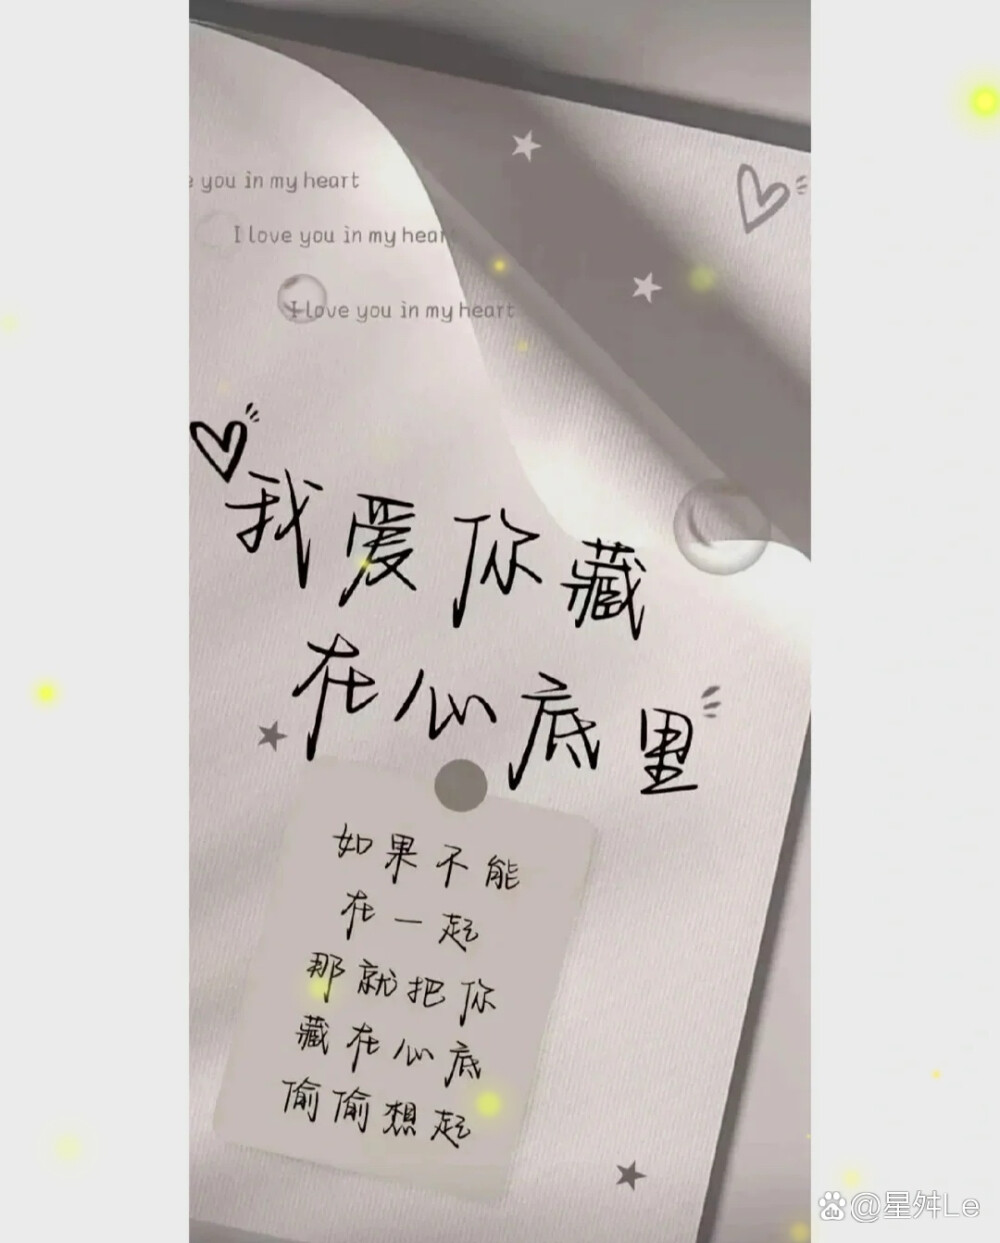 e you in my heart
I love you in my hear
I love you in my heart
我爱你藏
在心底里
如果不能
在一起
那就把你
藏在心底
偷偷想起
du @星舛Le